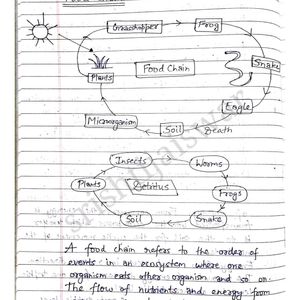 Grasshopper
Frog
Snake
Plants
Food Chain
Eagle
Microorganism
Soil
Death
Insects
Worms
Plants
Detritus
Frogs
Soil
Snake
A food chain refers to the order of
events in an ecosystem where one
organism eats other organism and so on.
The flow of nutrients and energy from